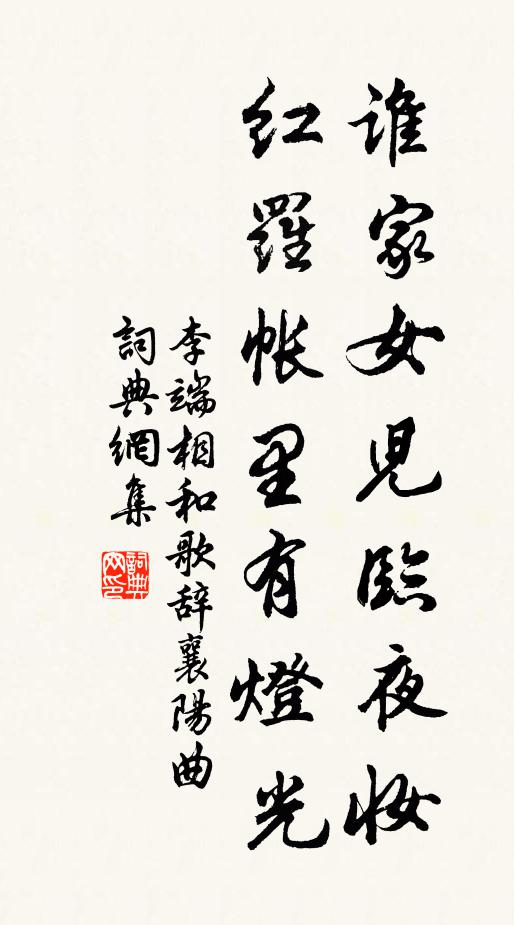 谁家女児臨夜妝
紅羅帳里有燈光
李端相和歌辞襄陽曲
詞典網集
詞典
网印